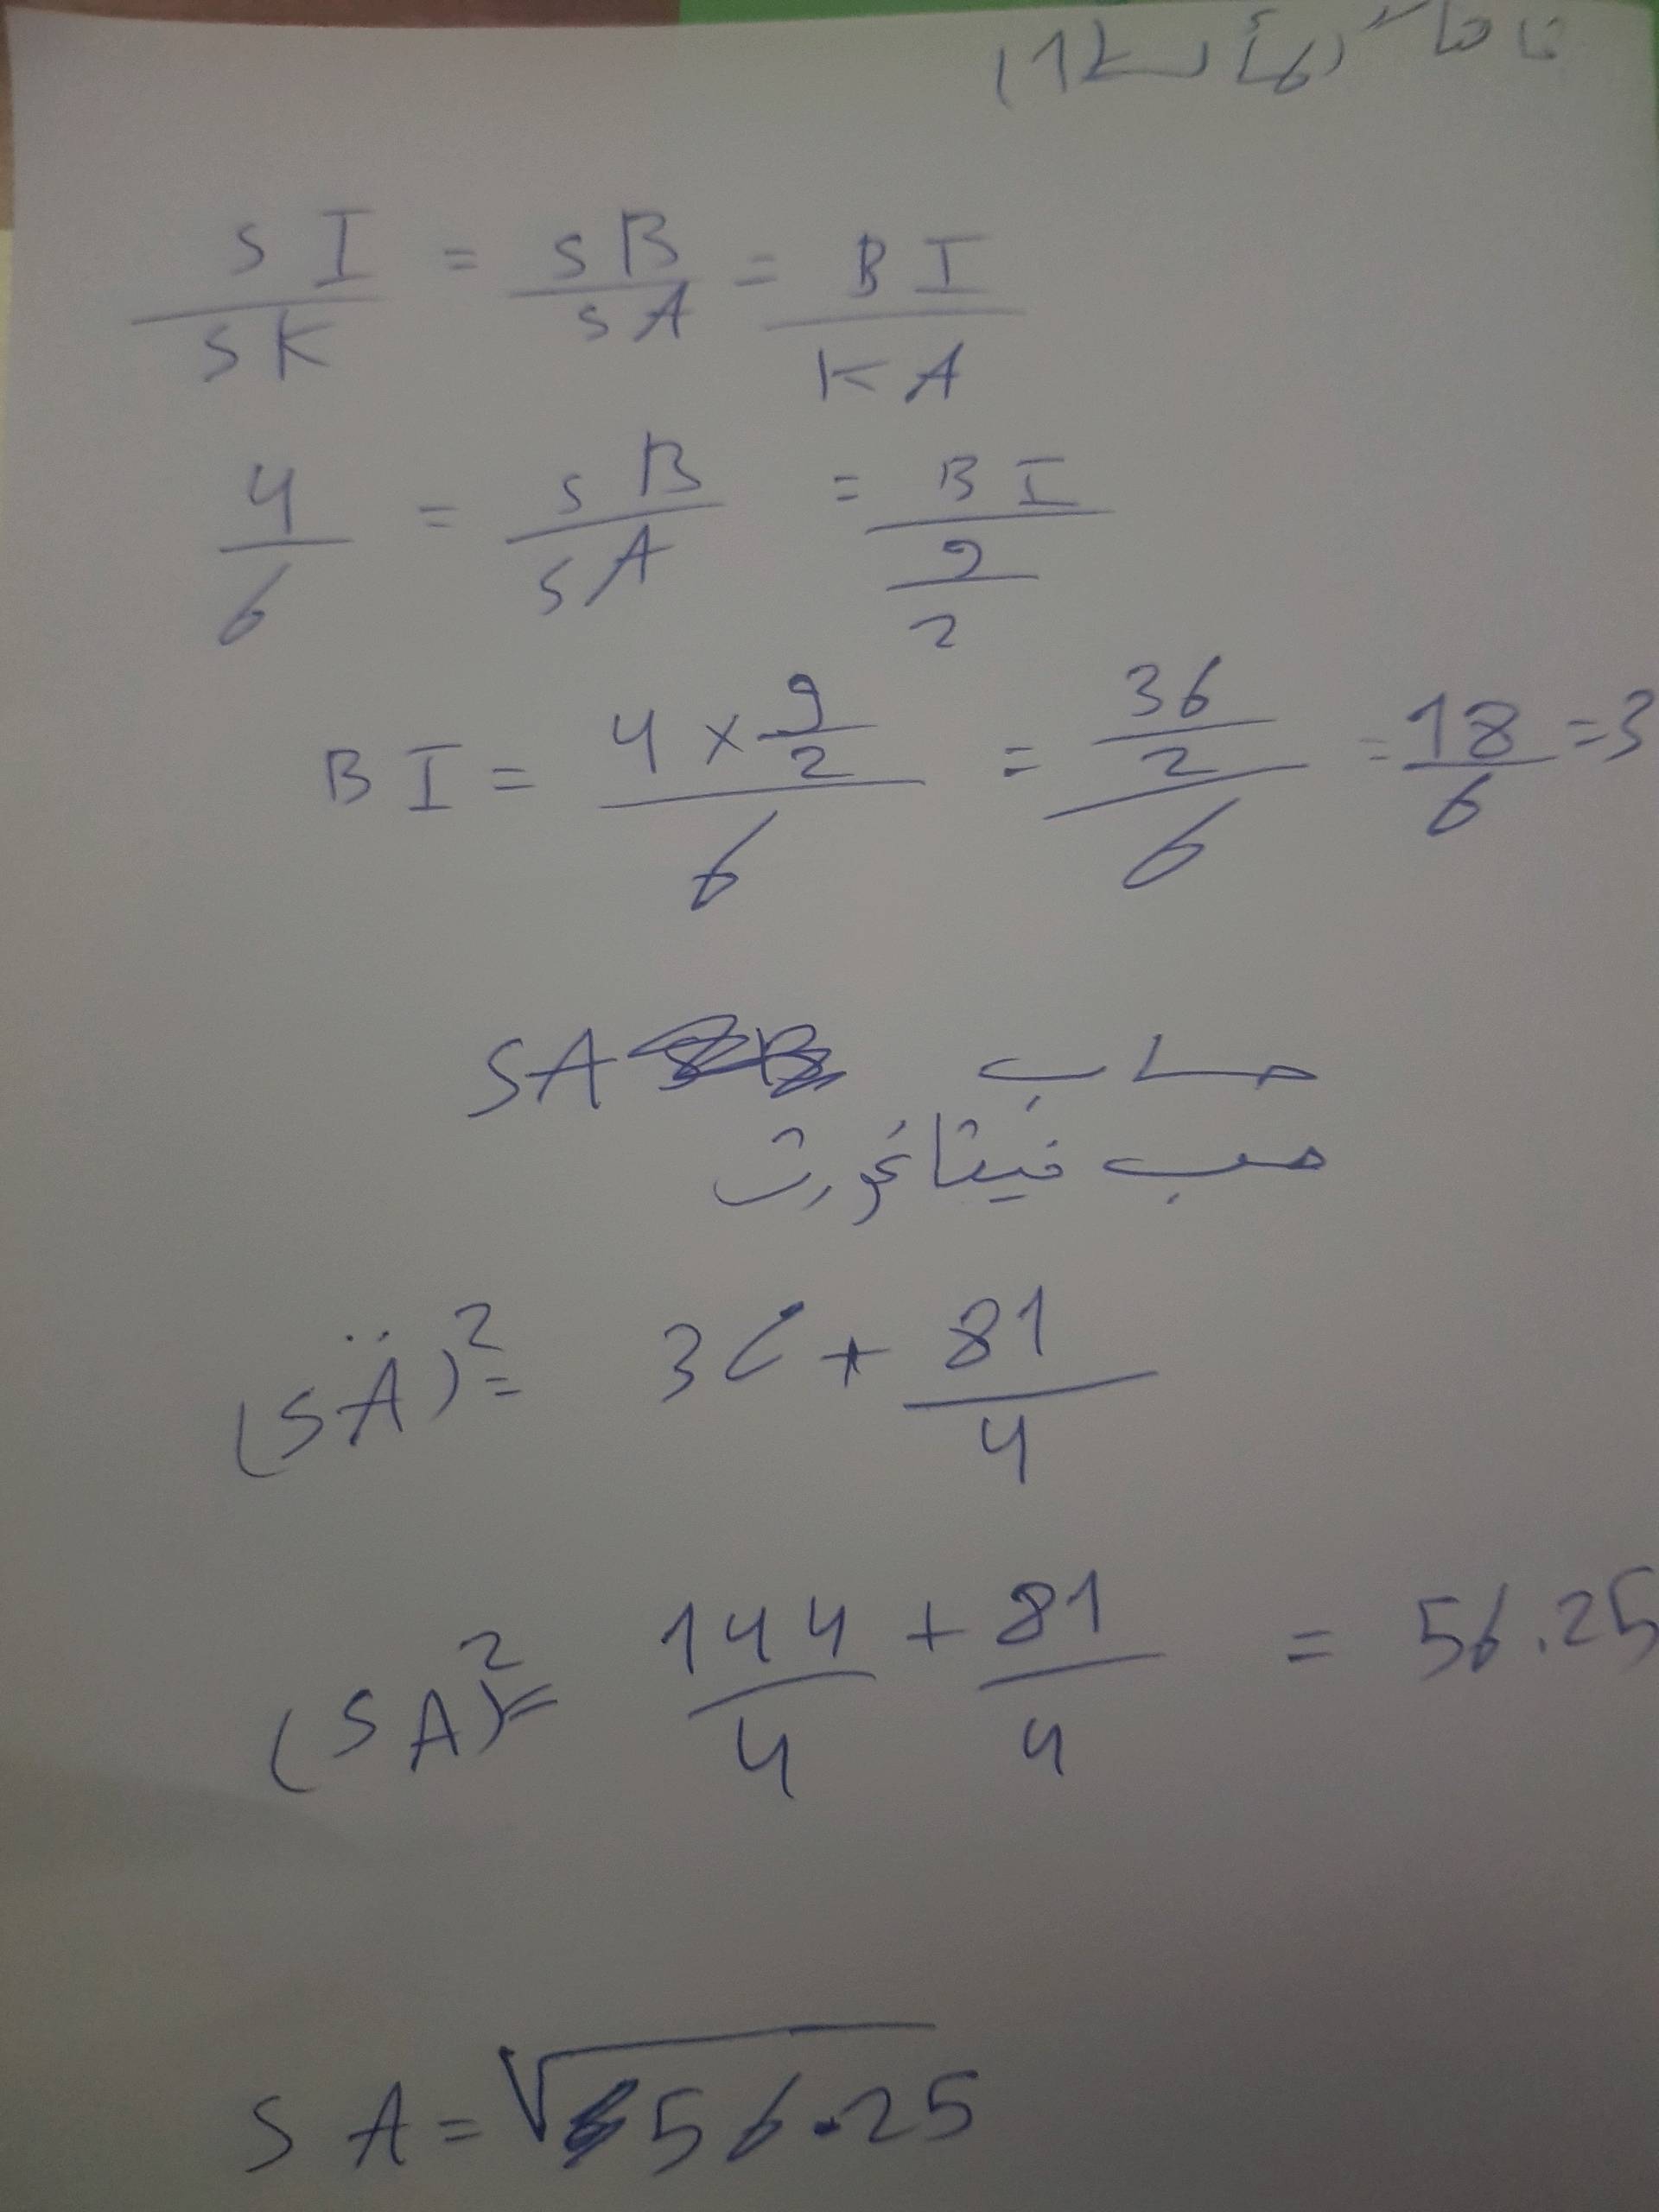 SI/SK = SB/SA = BI/KA
4/6 = SB/SA = BI/(9/2)
BI = (4 × 9/2)/6 = (36/2)/6 = 18/6 = 3
حساب SA
حسب فيتاغورث
(SA)² = 36 + 81/4
(SA)² = 144/4 + 81/4 = 56.25
SA = √56.25